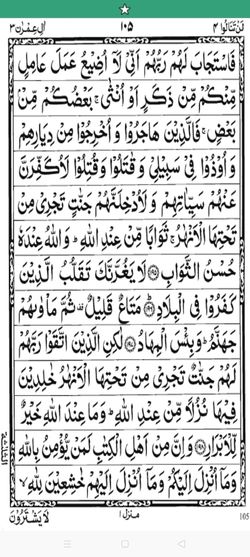 لن تنالوا ۴
۱۰۵
اٰل عمرٰن ۳
فَاسْتَجَابَ لَهُمْ رَبُّهُمْ اَنِّیْ لَاۤ اُضِیْعُ عَمَلَ عَامِلٍ
مِّنْكُمْ مِّنْ ذَكَرٍ اَوْ اُنْثٰی ۚ بَعْضُكُمْ مِّنْۢ
بَعْضٍ ۚ فَالَّذِیْنَ هَاجَرُوْا وَ اُخْرِجُوْا مِنْ دِیَارِهِمْ
وَ اُوْذُوْا فِیْ سَبِیْلِیْ وَ قٰتَلُوْا وَ قُتِلُوْا لَاُكَفِّرَنَّ
عَنْهُمْ سَیِّاٰتِهِمْ وَ لَاُدْخِلَنَّهُمْ جَنّٰتٍ تَجْرِیْ مِنْ
تَحْتِهَا الْاَنْهٰرُ ۚ ثَوَابًا مِّنْ عِنْدِ اللّٰهِ ؕ وَ اللّٰهُ عِنْدَهٗ
حُسْنُ الثَّوَابِ ﴿۱۹۵﴾ لَا یَغُرَّنَّكَ تَقَلُّبُ الَّذِیْنَ
كَفَرُوْا فِی الْبِلَادِ ﴿۱۹۶﴾ مَتَاعٌ قَلِیْلٌ ۫ ثُمَّ مَاْوٰىهُمْ
جَهَنَّمُ ؕ وَ بِئْسَ الْمِهَادُ ﴿۱۹۷﴾ لٰكِنِ الَّذِیْنَ اتَّقَوْا رَبَّهُمْ
لَهُمْ جَنّٰتٌ تَجْرِیْ مِنْ تَحْتِهَا الْاَنْهٰرُ خٰلِدِیْنَ
فِیْهَا نُزُلًا مِّنْ عِنْدِ اللّٰهِ ؕ وَ مَا عِنْدَ اللّٰهِ خَیْرٌ
لِّلْاَبْرَارِ ﴿۱۹۸﴾ وَ اِنَّ مِنْ اَهْلِ الْكِتٰبِ لَمَنْ یُّؤْمِنُ بِاللّٰهِ
وَ مَاۤ اُنْزِلَ اِلَیْكُمْ وَ مَاۤ اُنْزِلَ اِلَیْهِمْ خٰشِعِیْنَ لِلّٰهِ ۙ
لَا یَشْتَرُوْنَ
منزل ۱
105